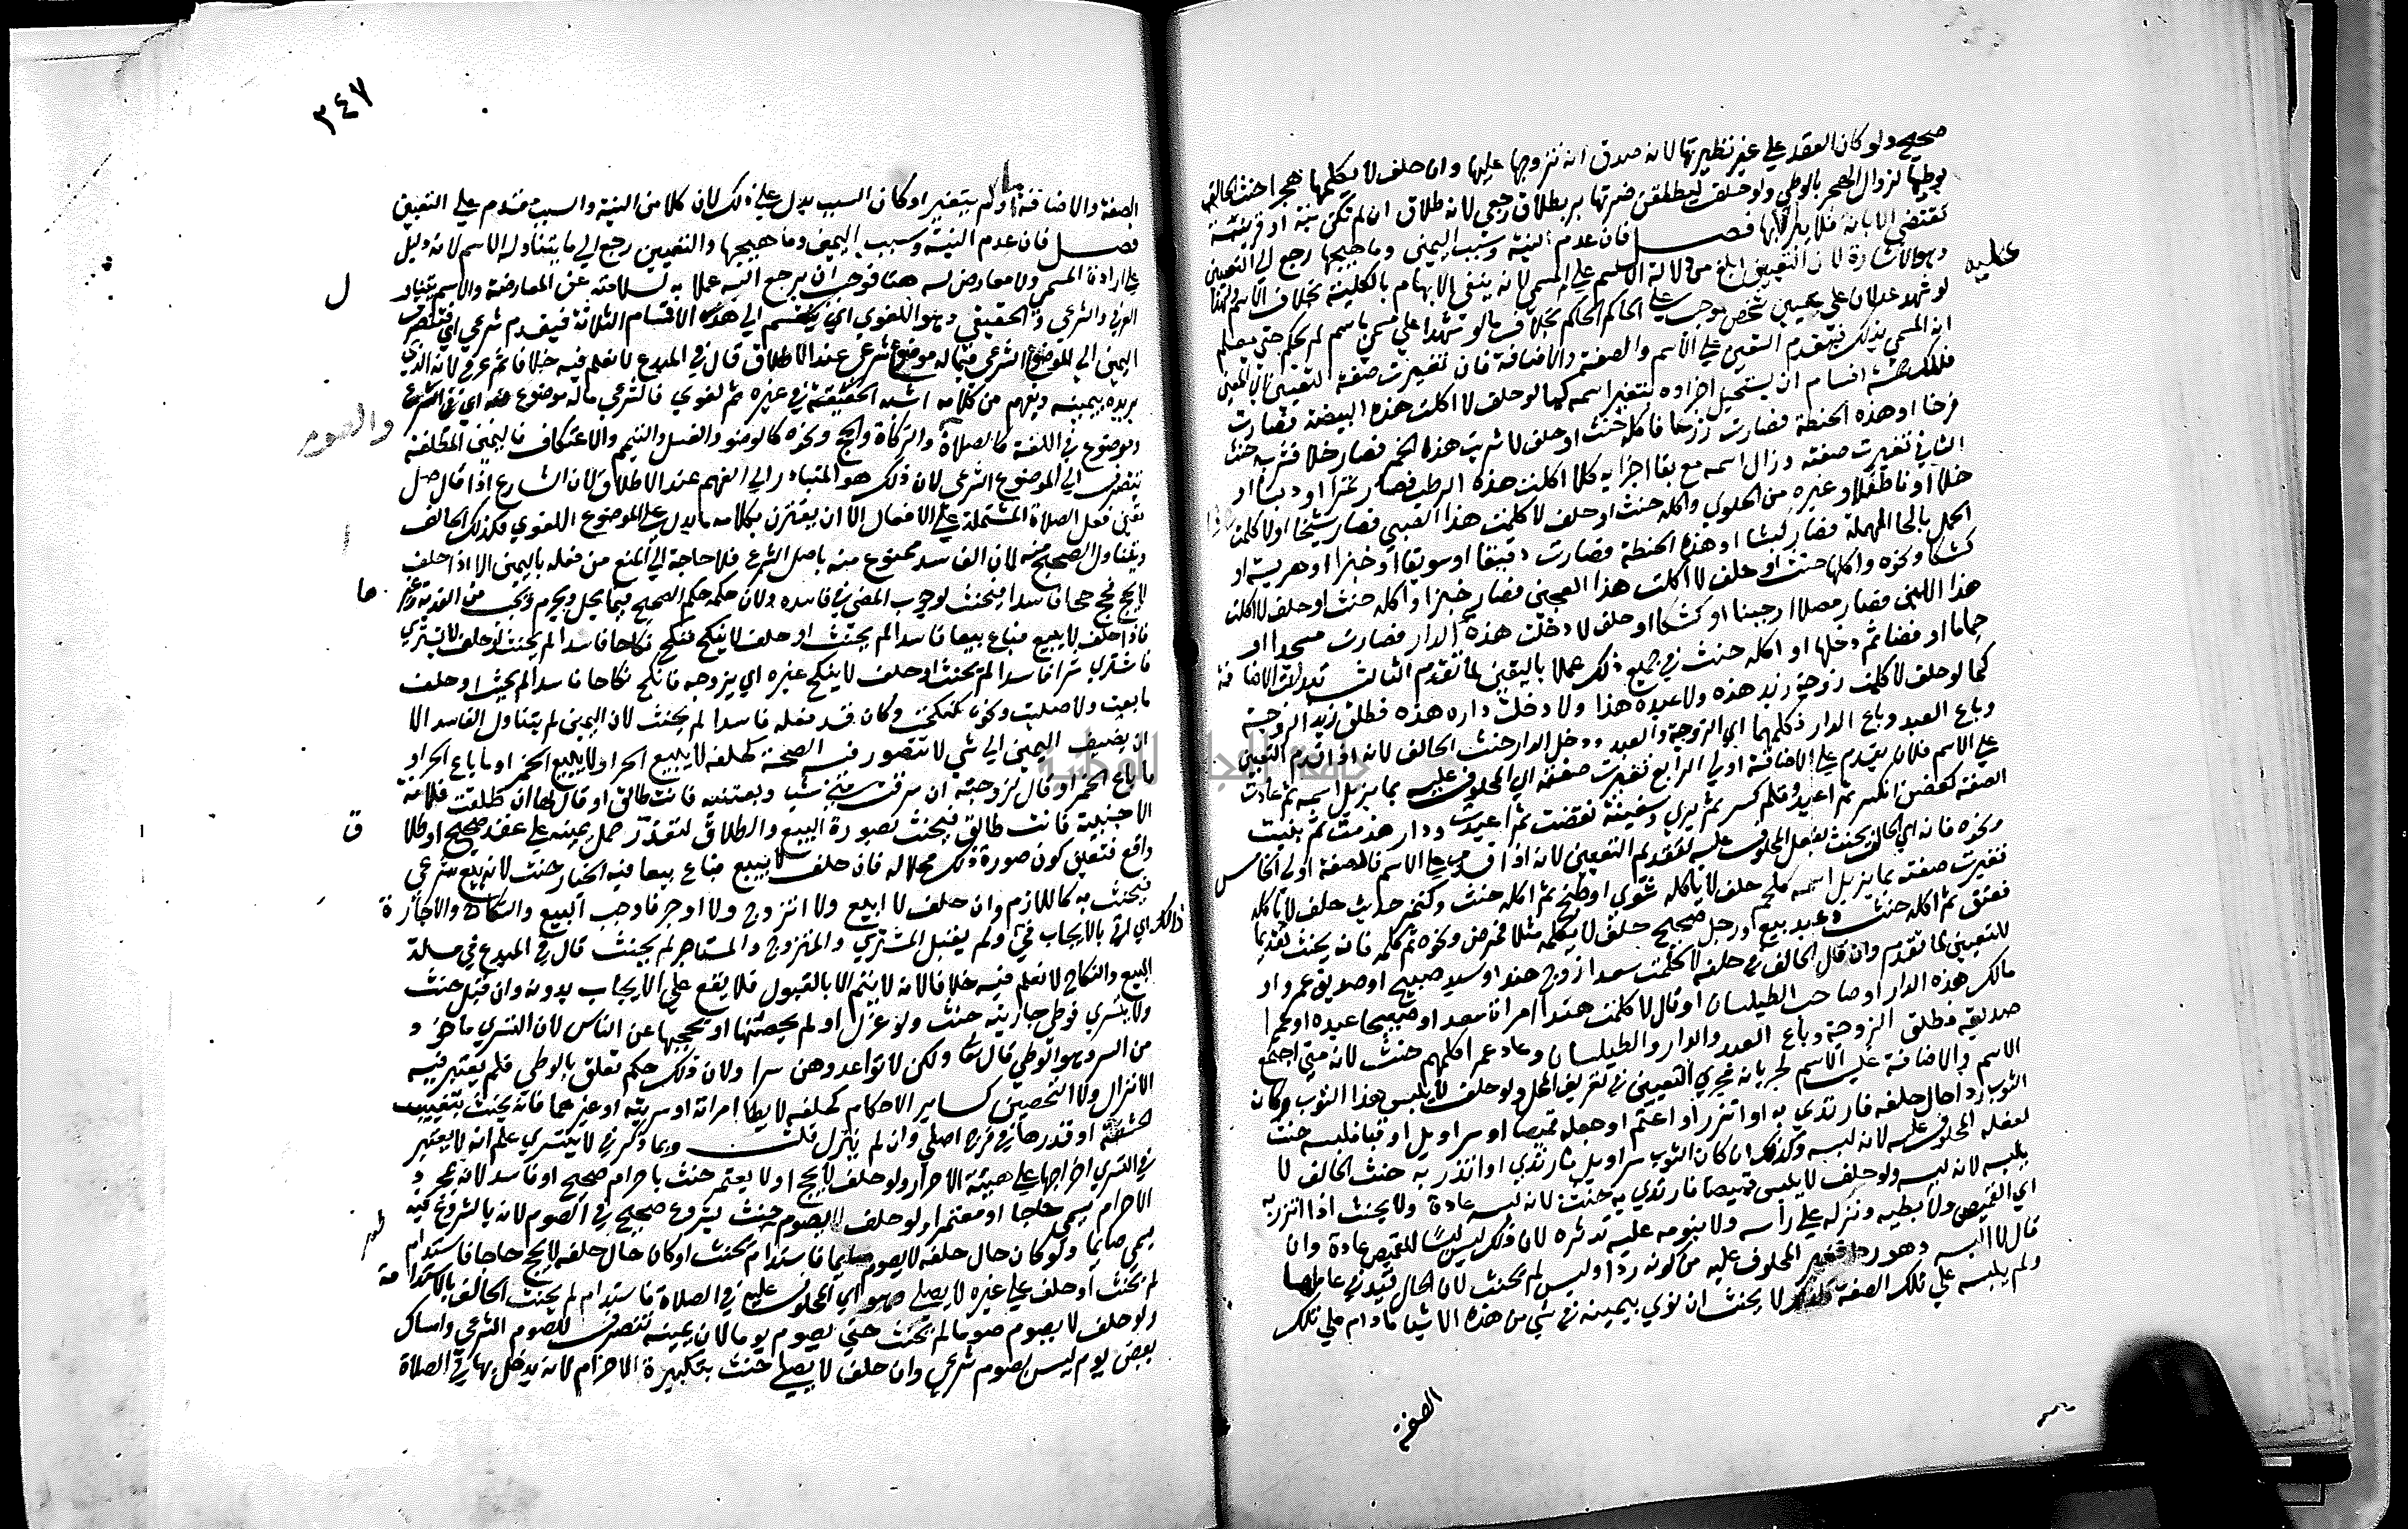 صحيح ولو كان العقد علي غير نظيرتها لانه صدق انه تزوجها عليها وان حلف لا يكلمها هجرا حنث الحالف
بوطيها لزوال الهجر بالوطي ولو حلف ليطلقن ضرتها بر بطلاق رجعي لانه طلاق ان لم تكن نية او قرينة
تقتضي الابانة فلا يبر الا بها فصل فان عدم النية وسبب اليمين وما هيجها رجع الي التعيين
وهو الاشارة لان التعيين ابلغ من دلالة الاسم علي المسمي لانه ينفي الابهام بالكلية بخلاف الاسم ولهذا
لو شهد عدلان علي عين شخص وجب علي الحاكم الحكم بخلاف ما لو شهدا علي مسمي باسم لم يحكم حتي يعلم
انه المسمي بذلك فيقدم التعيين علي الاسم والصفة والاضافة فان تغيرت صفة المعين
فذلك خمسة اقسام ان يستحيل اجزاوه بتغير اسمه كما لو حلف لا اكلت هذه البيضة فصارت
فرخا او هذه الحنطة فصارت زرعا فاكله حنث او حلف لا شربت هذا الخمر فصار خلا فشربه حنث
الثاني تغيرت صفته وزال اسمه مع بقا اجزايه كلا اكلت هذا الرطب فصار تمرا او دبسا او
خلا او ناطفا او غيره من الحلوي واكله حنث او حلف لا كلمت هذا الصبي فصار شيخا او لا اكلت
الحمل بالحا المهملة فصار كبشا او هذه الحنطة فصارت دقيقا او سويقا او خبزا او هريسة او
كشكا ونحوه واكلها حنث او حلف لا اكلت هذا العجين فصار خبزا واكله حنث او حلف لا اكلت
هذا اللبن فصار مصلا او جبنا او كشكا او حلف لا دخلت هذه الدار فصارت مسجدا او
حماما او فضا ثم دخلها او اكله حنث في جميع ذلك عملا باليقين لما تقدم الثالث تبدلت الاضافة
كما لو حلف لا كلمت زوجة زيد هذه ولا عبده هذا ولا دخلت داره هذه فطلق زيد الزوجة
وباع العبد وباع الدار فكلمهما اي الزوجة والعبد ودخل الدار حنث الحالف لانه اذا قدم التعيين
علي الاسم فلان يقدم علي الاضافة اولي الرابع تغيرت صفته اي المحلوف عليه بما يزيل اسمه ثم عادت
الصفة كغصن انكسر ثم اعيد وقلم كسر ثم بري وسفينة نقضت ثم اعيدت ودار هدمت ثم بنيت
ونحوه فانه اي الحالف يحنث بفعل المحلوف عليه لتقديم التعيين لانه اذا قدم علي الاسم فالصفة اولي الخامس
تغيرت صفته بما يزيل اسمه كلحم حلف لا ياكله شوي او طبخ ثم اكله حنث وكتمر حديث حلف لا ياكله
فعتق ثم اكله حنث وعبد بيع او رجل صحيح حلف لا يكلمه مثلا فمرض ونحوه ثم كلمه فانه يحنث تقديما
للتعيين لما تقدم وان قال الحالف في حلفه لا كلمت سعدا زوج هند او سيد صبيح او صديق عمرو او
مالك هذه الدار او صاحب الطيلسان او قال لا كلمت هندا امراة سعد او صبيحا عبده او عمرا
صديقه فطلق الزوجة وباع العبد والدار والطيلسان وعاد عمرا وكلمهم حنث لانه متي اجتمع
الاسم والاضافة غلب الاسم لجريانه مجري التعيين في تعريف المحل ولو حلف لا يلبس هذا الثوب وكان
الثوب ردا حال حلفه فارتدي به او اتزر او اعتم او جعله قميصا او سراويل او قبا فلبسه حنث
لفعله المحلوف عليه لانه لبسه وكذلك ان كان الثوب سراويل فارتدي او اتزر به حنث الحالف لا
يلبسه لانه لبسه ولو حلف لا يلبس قميصا فارتدي به حنث لانه لبسه عادة ولا يحنث اذا اتزر به
اي القميص ولا بطيه وتركه علي راسه ولا بنومه عليه تدثره لان ذلك ليس لبسا للقميص عادة وان
قال لا البسه وهو ردا فغير المحلوف عليه من كونه ردا وليس لم يحنث لان الحال قيد في عاملها
ولم يلبسه علي تلك الصفة وكذلك لا يحنث ان نوي بيمينه في شي من هذه الاشيا ما دام علي تلك
الصفة
عليه
٣٤٧
الصفة والاضافة او لم يتغير او كان السبب يدل علي ذلك لان كلا من النية والسبب مقدم علي التعيين
فصل فان عدم النية وسبب اليمين وما هيجها والتعيين رجع الي ما يتناوله الاسم لانه دليل
علي ارادة المسمي ولا معارض له هنا فوجب ان يرجع اليه عملا به لسلامته عن المعارضة والاسم يتناول
العرفي والشرعي والحقيقي وهو اللغوي اي ينقسم الي هذه الاقسام الثلاثة فيقدم شرعي اي فتنصرف
اليمين الي الموضوع الشرعي فيما له موضوع شرعي عند الاطلاق قال في المبدع لا نعلم فيه خلافا ثم عرفي لانه الذي
يريده بيمينه ويفهم من كلامه اشبه الحقيقة في غيره ثم لغوي فالشرعي ما له موضوع فيه اي في الشرع
وموضوع في اللغة كالصلاة والزكاة والحج ونحوه كالوضو والغسل والتيمم والاعتكاف فاليمين المطلقة
تنصرف الي الموضوع الشرعي لان ذلك هو المتبادر الي الفهم عند الاطلاق لان الشارع اذا قال صل
يعني فعل الصلاة المشتملة علي الافعال الا ان يقترن بكلامه ما يدل علي الموضوع اللغوي فكذلك الحالف
ويتناول الصحيح منه لان الفاسد ممنوع منه باصل الشرع فلا حاجة الي المنع من فعله باليمين الا اذا حلف
لا يحج فحج حجا فاسدا فيحنث لوجوب المضي في فاسده ولان حكمه حكم الصحيح فيما يحل ويحرم ويجب من الفدية وغيرها
فاذا حلف لا يبيع فباع بيعا فاسدا لم يحنث او حلف لا ينكح فنكح نكاحا فاسدا لم يحنث او حلف لا يشتري
فاشتري شرا فاسدا لم يحنث او حلف لا ينكح غيره اي يزوجه فانكح نكاحا فاسدا لم يحنث او حلف
ما بعت ولا صليت ونحوه كنكحت وكان قد فعله فاسدا لم يحنث لان اليمين لم يتناول الفاسد الا
ان يضيف اليمين الي شي لا تتصور فيه الصحة كحلفه لا يبيع الحر او لا يبيع الخمر او ما باع الحر او
ما باع الخمر او قال لزوجته ان سرقت مني شيا وبعتنيه فانت طالق او قال لها ان طلقت فلانة
الاجنبية فانت طالق فيحنث بصورة البيع والطلاق لتعذر حمل يمينه علي عقد صحيح او طلاق
واقع فتعلق كون صورة ذلك محلا له فان حلف لا يبيع فباع بيعا فيه الخيار حنث لانه بيع شرعي
فيحنث به كاللازم وان حلف لا ابيع ولا اتزوج ولا اوجر فاوجب البيع والنكاح والاجارة
اي اتي بالايجاب في ذلك ولم يقبل المشتري والمتزوج والمستاجر لم يحنث قال في المبدع في مسلة
البيع والنكاح لا نعلم فيه خلافا لانه لا يتم الا بالقبول فلا يقع علي الايجاب بدونه وان قبل حنث
ولا يتسري فوطي جاريته حنث ولو عزل او لم يحصنها او يحجبها عن الناس لان التسري ماخوذ
من السر وهو الوطي قال تعالي ولكن لا تواعدوهن سرا ولان ذلك حكم تعلق بالوطي فلم يعتبر فيه
الانزال ولا التحصين كساير الاحكام كحلفه لا يطا امراته او سريته او غيرهما فانه يحنث بتغييب
حشفته او قدرها في فرج اصلي وان لم ينزل قلت وبما ذكر في لا يتسري علم انه لا يعتبر
في التسري اخراجها علي هيئة الاحرار ولو حلف لا يحج او لا يعتمر حنث باحرام صحيح او فاسد لانه بمجرد
الاحرام يسمي حاجا او معتمرا ولو حلف لا يصوم حنث بشروع صحيح في الصوم لانه بالشروع فيه
يسمي صايما ولو كان حال حلفه لا يصوم صايما فاستدام لم يحنث او كان حال حلفه لا يحج حاجا فاستدام
لم يحنث او حلف علي غيره لا يصلي وهو اي المحلوف عليه في الصلاة فاستدام لم يحنث الحالف بالاستدامة
ولو حلف لا يصوم صوما لم يحنث حتي يصوم يوما لان يمينه تنصرف للصوم الشرعي وامساك
بعض يوم ليس بصوم شرعي وان حلف لا يصلي حنث بتكبيرة الاحرام لانه يدخل بها في الصلاة
والصوم